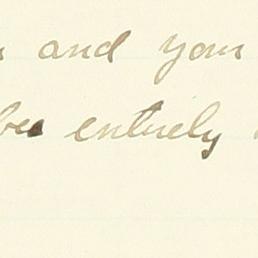 and your
be entirely